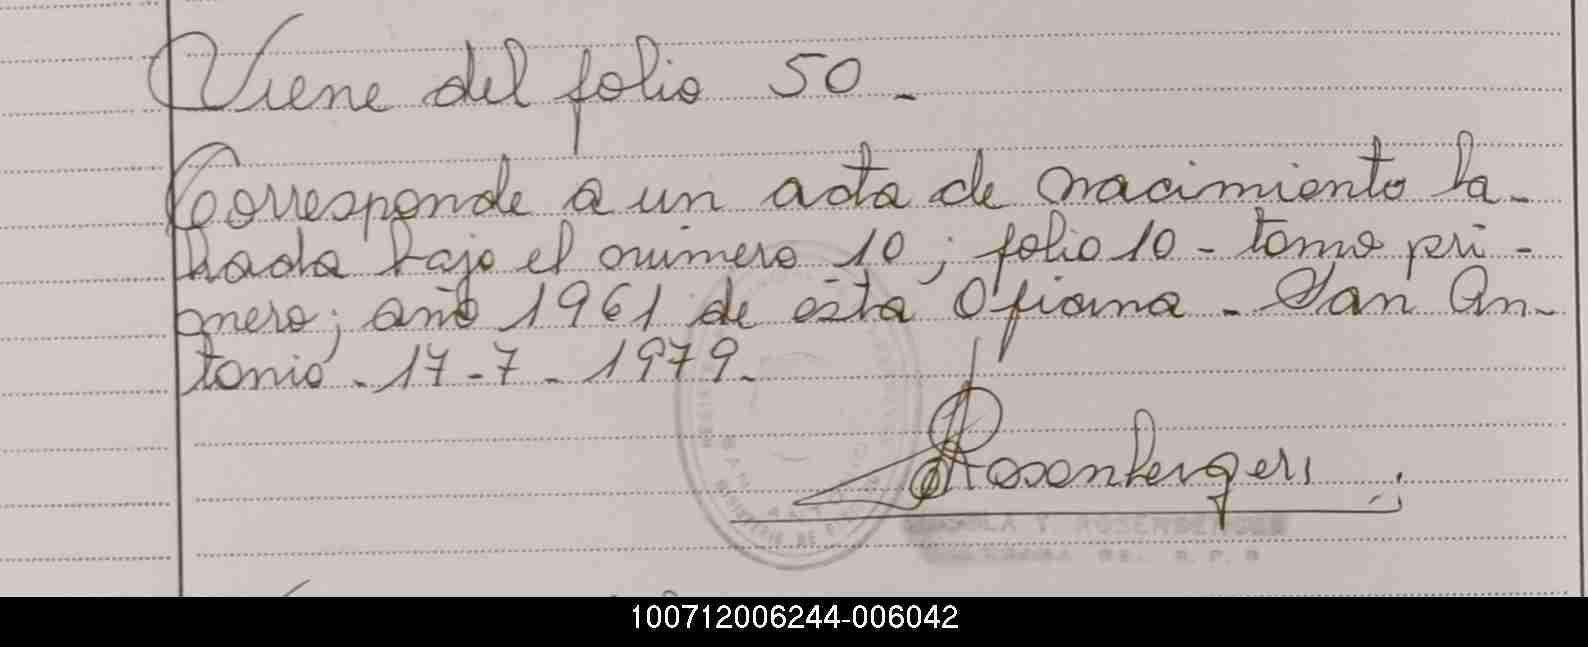 Viene del folio 50 -
Corresponde a un acta de nacimiento la-
brada bajo el número 10; folio 10 - tomo pri-
mero; año 1961 de esta Oficina - San An-
tonio - 17 - 7 - 1979 -
Rosenberger
ROSENBERGER
100712006244-006042